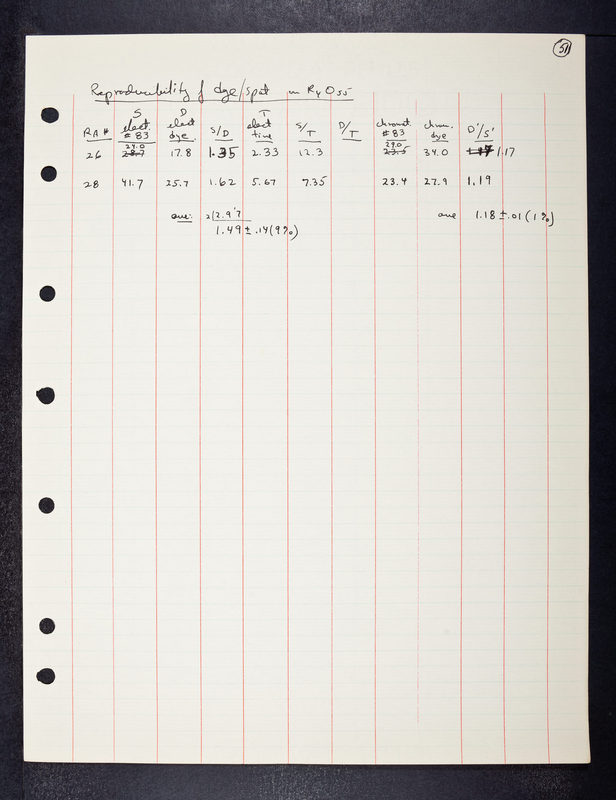 51
Reproducibility of dye/spot in Ry Oss
S D T
elect. elect elect chromat. chrom.
RA # # 83 dye S/D time S/T D/T # 83 dye D'/S'
24.0 29.0
26 17.8 1.35 2.33 12.3 34.0 1.17
28 41.7 25.7 1.62 5.67 7.35 23.4 27.9 1.19
ave: 2|2.97 ave 1.18 ± .01 (1%)
1.49 ± .14 (9%)